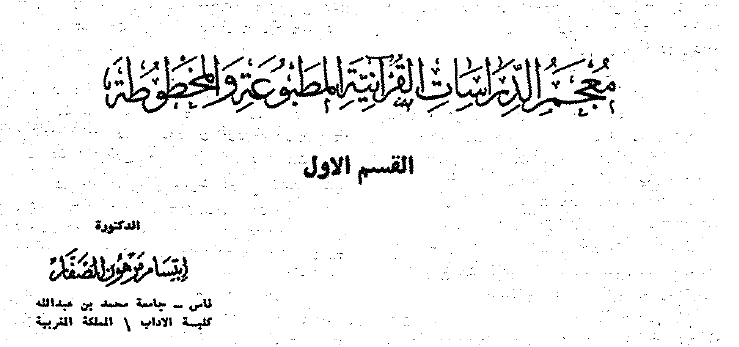 معجم الدراسات القرآنية المطبوعة والمخطوطة
القسم الاول
الدكتورة
ابتسام مرهون الصفار
فاس ــ جامعة محمد بن عبدالله
كليــة الاداب \ المملكة المغربية